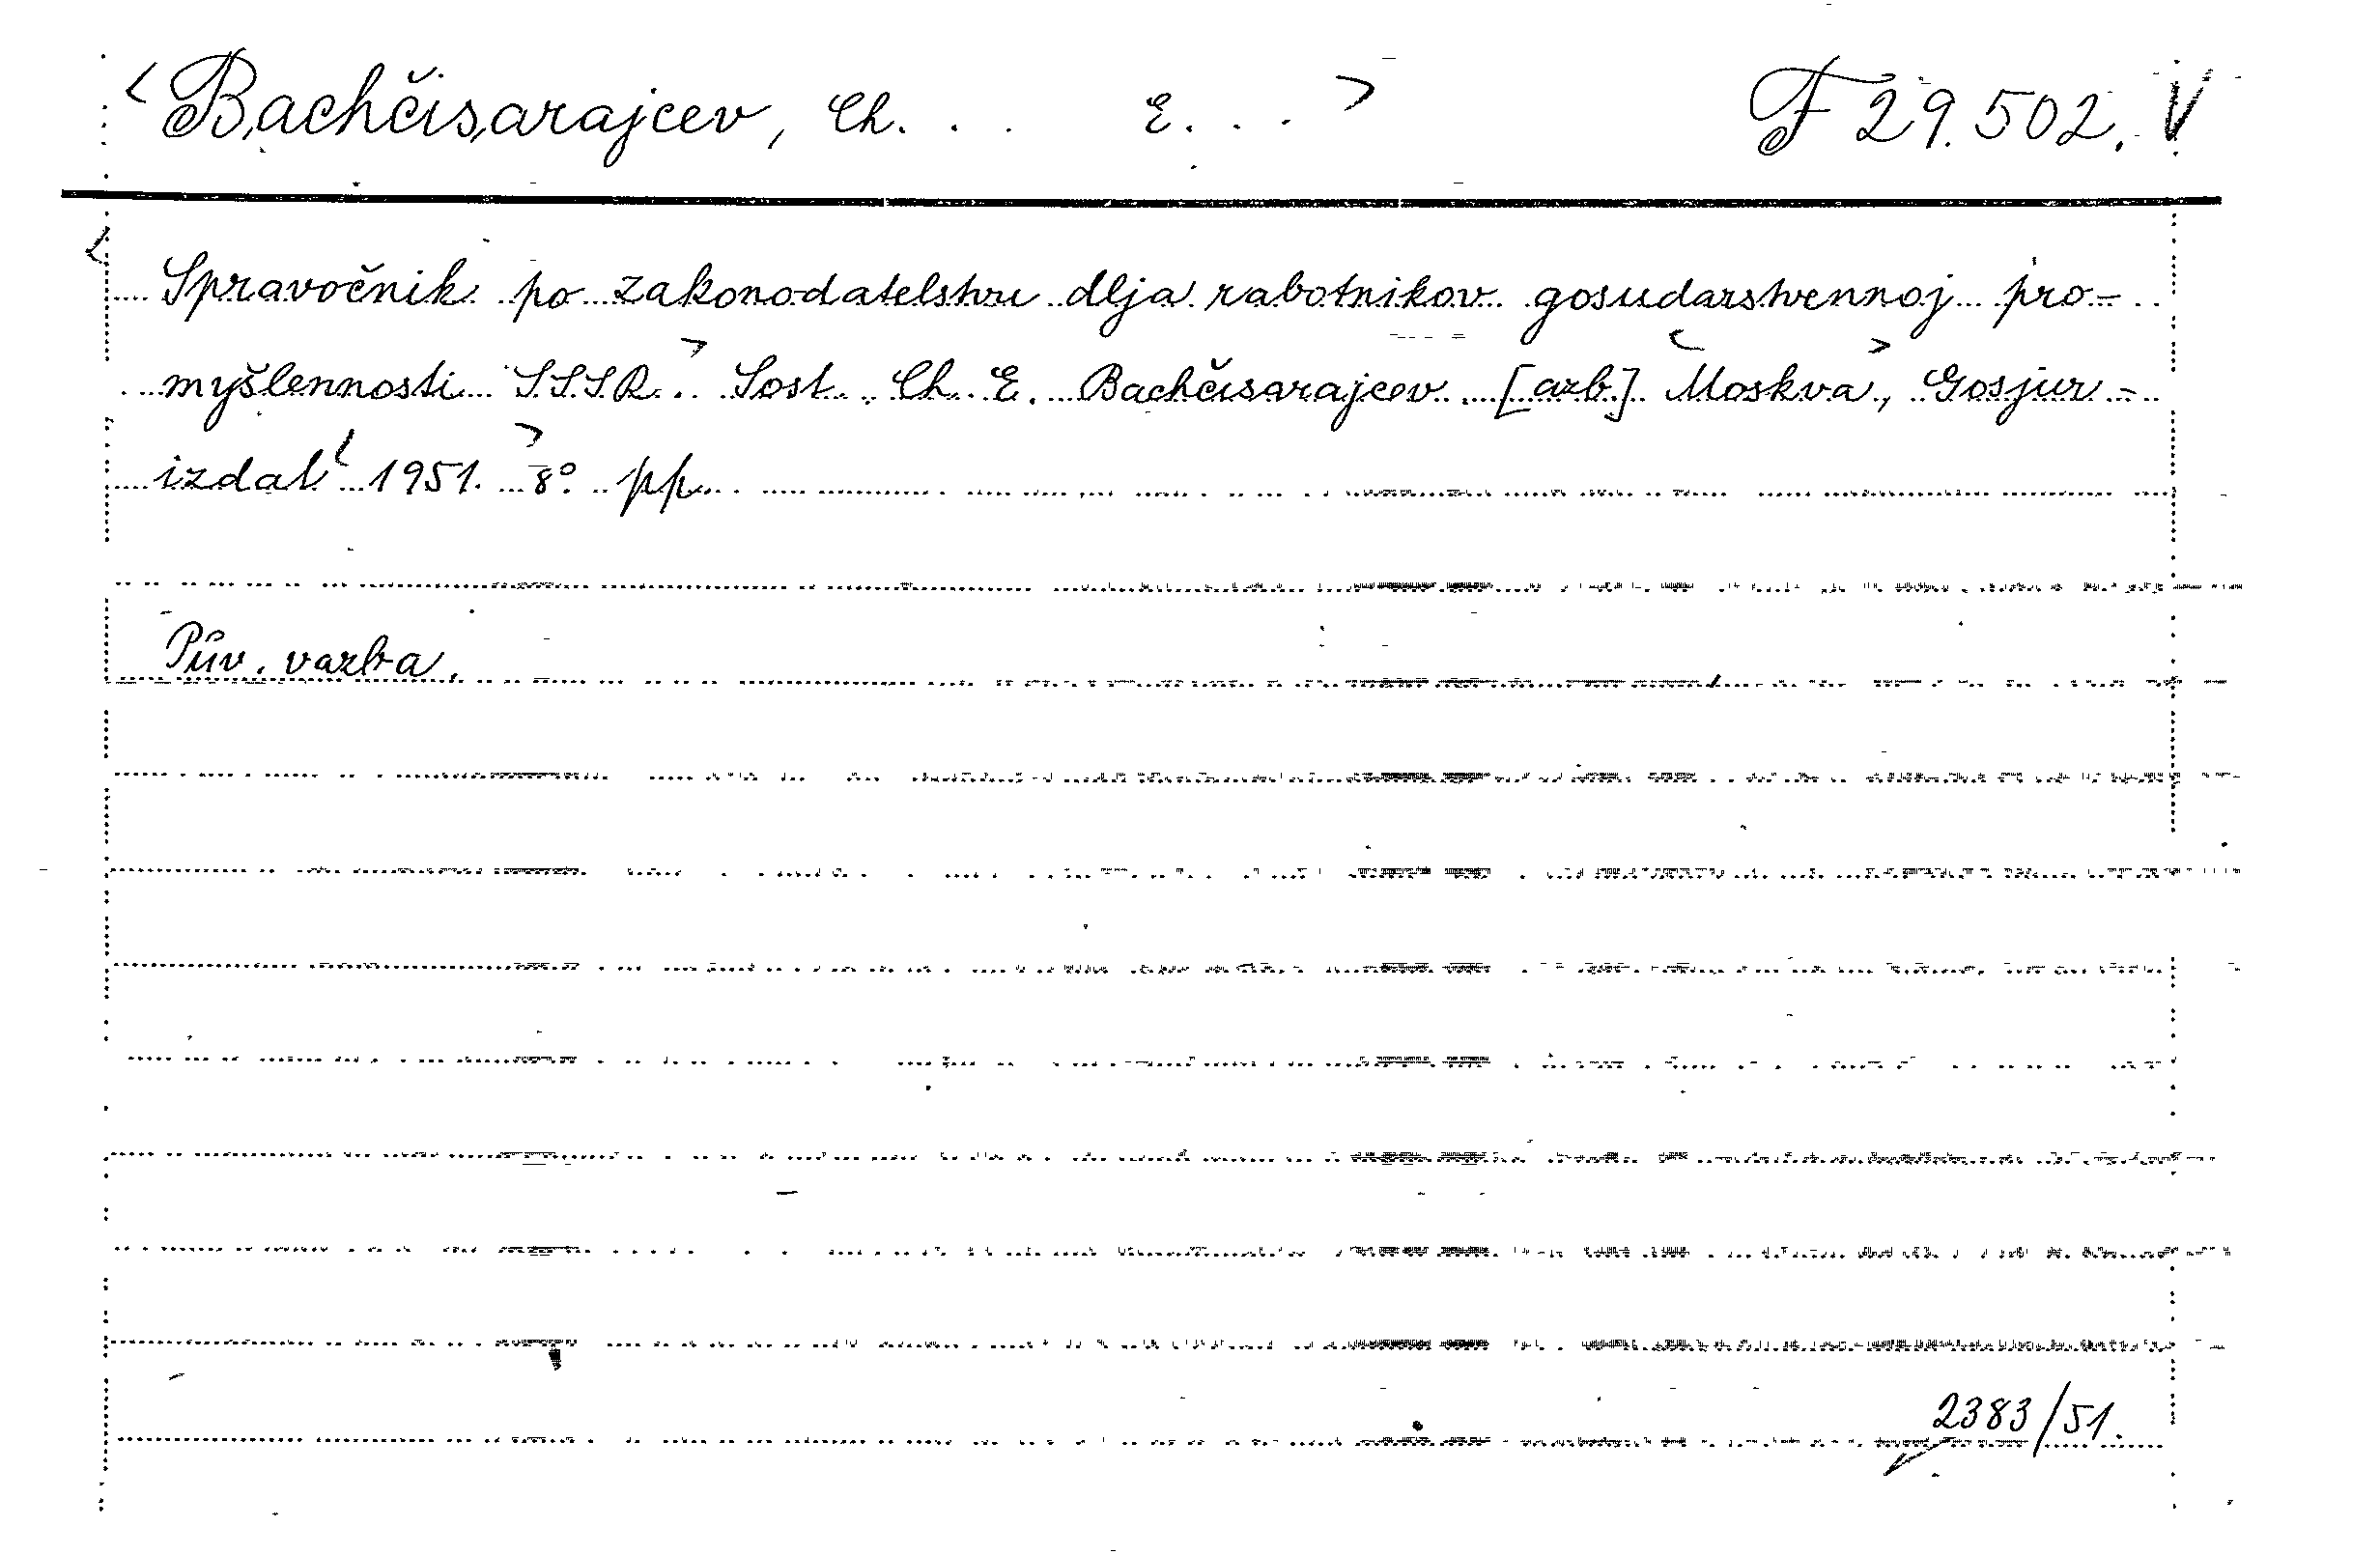 <Bachčisarajcev, Ch... E...> F 29.502. V
<Spravočnik po zakonodatelstvu dlja rabotnikov gosudarstvennoj pro-
myšlennosti SSSR.> Sost. Ch. E. Bachčisarajcev. [azb.] <Moskva>, Gosjur-
izdat <1951.> 8°. pp.
Pův. vazba.
2383/51.